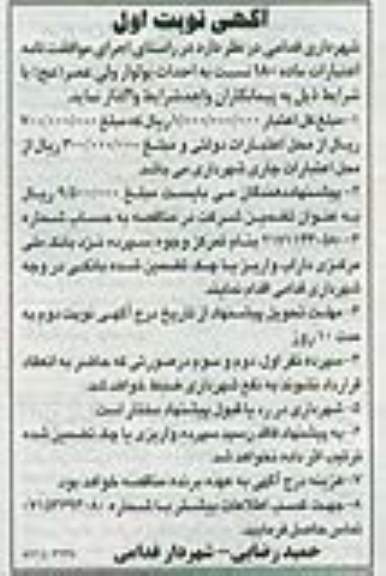 آگهی نوبت اول
شهرداری فدامی در نظر دارد در راستای اجرای موافقت نامه
اعتبارات ماده ۱۸۰ نسبت به احداث بولوار ولی عصر (عج) با
شرایط ذیل به پیمانکاران واجد شرایط واگذار نماید.
۱- مبلغ کل اعتبار ۱/۰۰۰/۰۰۰/۰۰۰ ریال که مبلغ ۷۰۰/۰۰۰/۰۰۰
ریال از محل اعتبارات دولتی و مبلغ ۳۰۰/۰۰۰/۰۰۰ ریال از
محل اعتبارات جاری شهرداری می باشد.
۲- پیشنهاددهندگان می بایست مبلغ ریال
به عنوان تضمین شرکت در مناقصه به حساب شماره
بنام تمرکز وجوه سپرده نزد بانک ملی
مرکزی داراب واریز یا چک تضمین شده بانکی در وجه
شهرداری فدامی اقدام نمایند.
۳- مهلت تحویل پیشنهاد از تاریخ درج آگهی نوبت دوم به
مدت ۱۰ روز
۴- سپرده نفر اول، دوم و سوم درصورتی که حاضر به انعقاد
قرارداد نشوند به نفع شهرداری ضبط خواهد شد.
۵- شهرداری در رد یا قبول پیشنهاد مختار است
۶- به پیشنهاد فاقد رسید سپرده واریزی یا چک تضمین شده
ترتیب اثر داده نخواهد شد
۷- هزینه درج آگهی به عهده برنده مناقصه خواهد بود
۸- جهت کسب اطلاعات بیشتر با شماره
تماس حاصل فرمایید.
حمید رضایی - شهردار فدامی